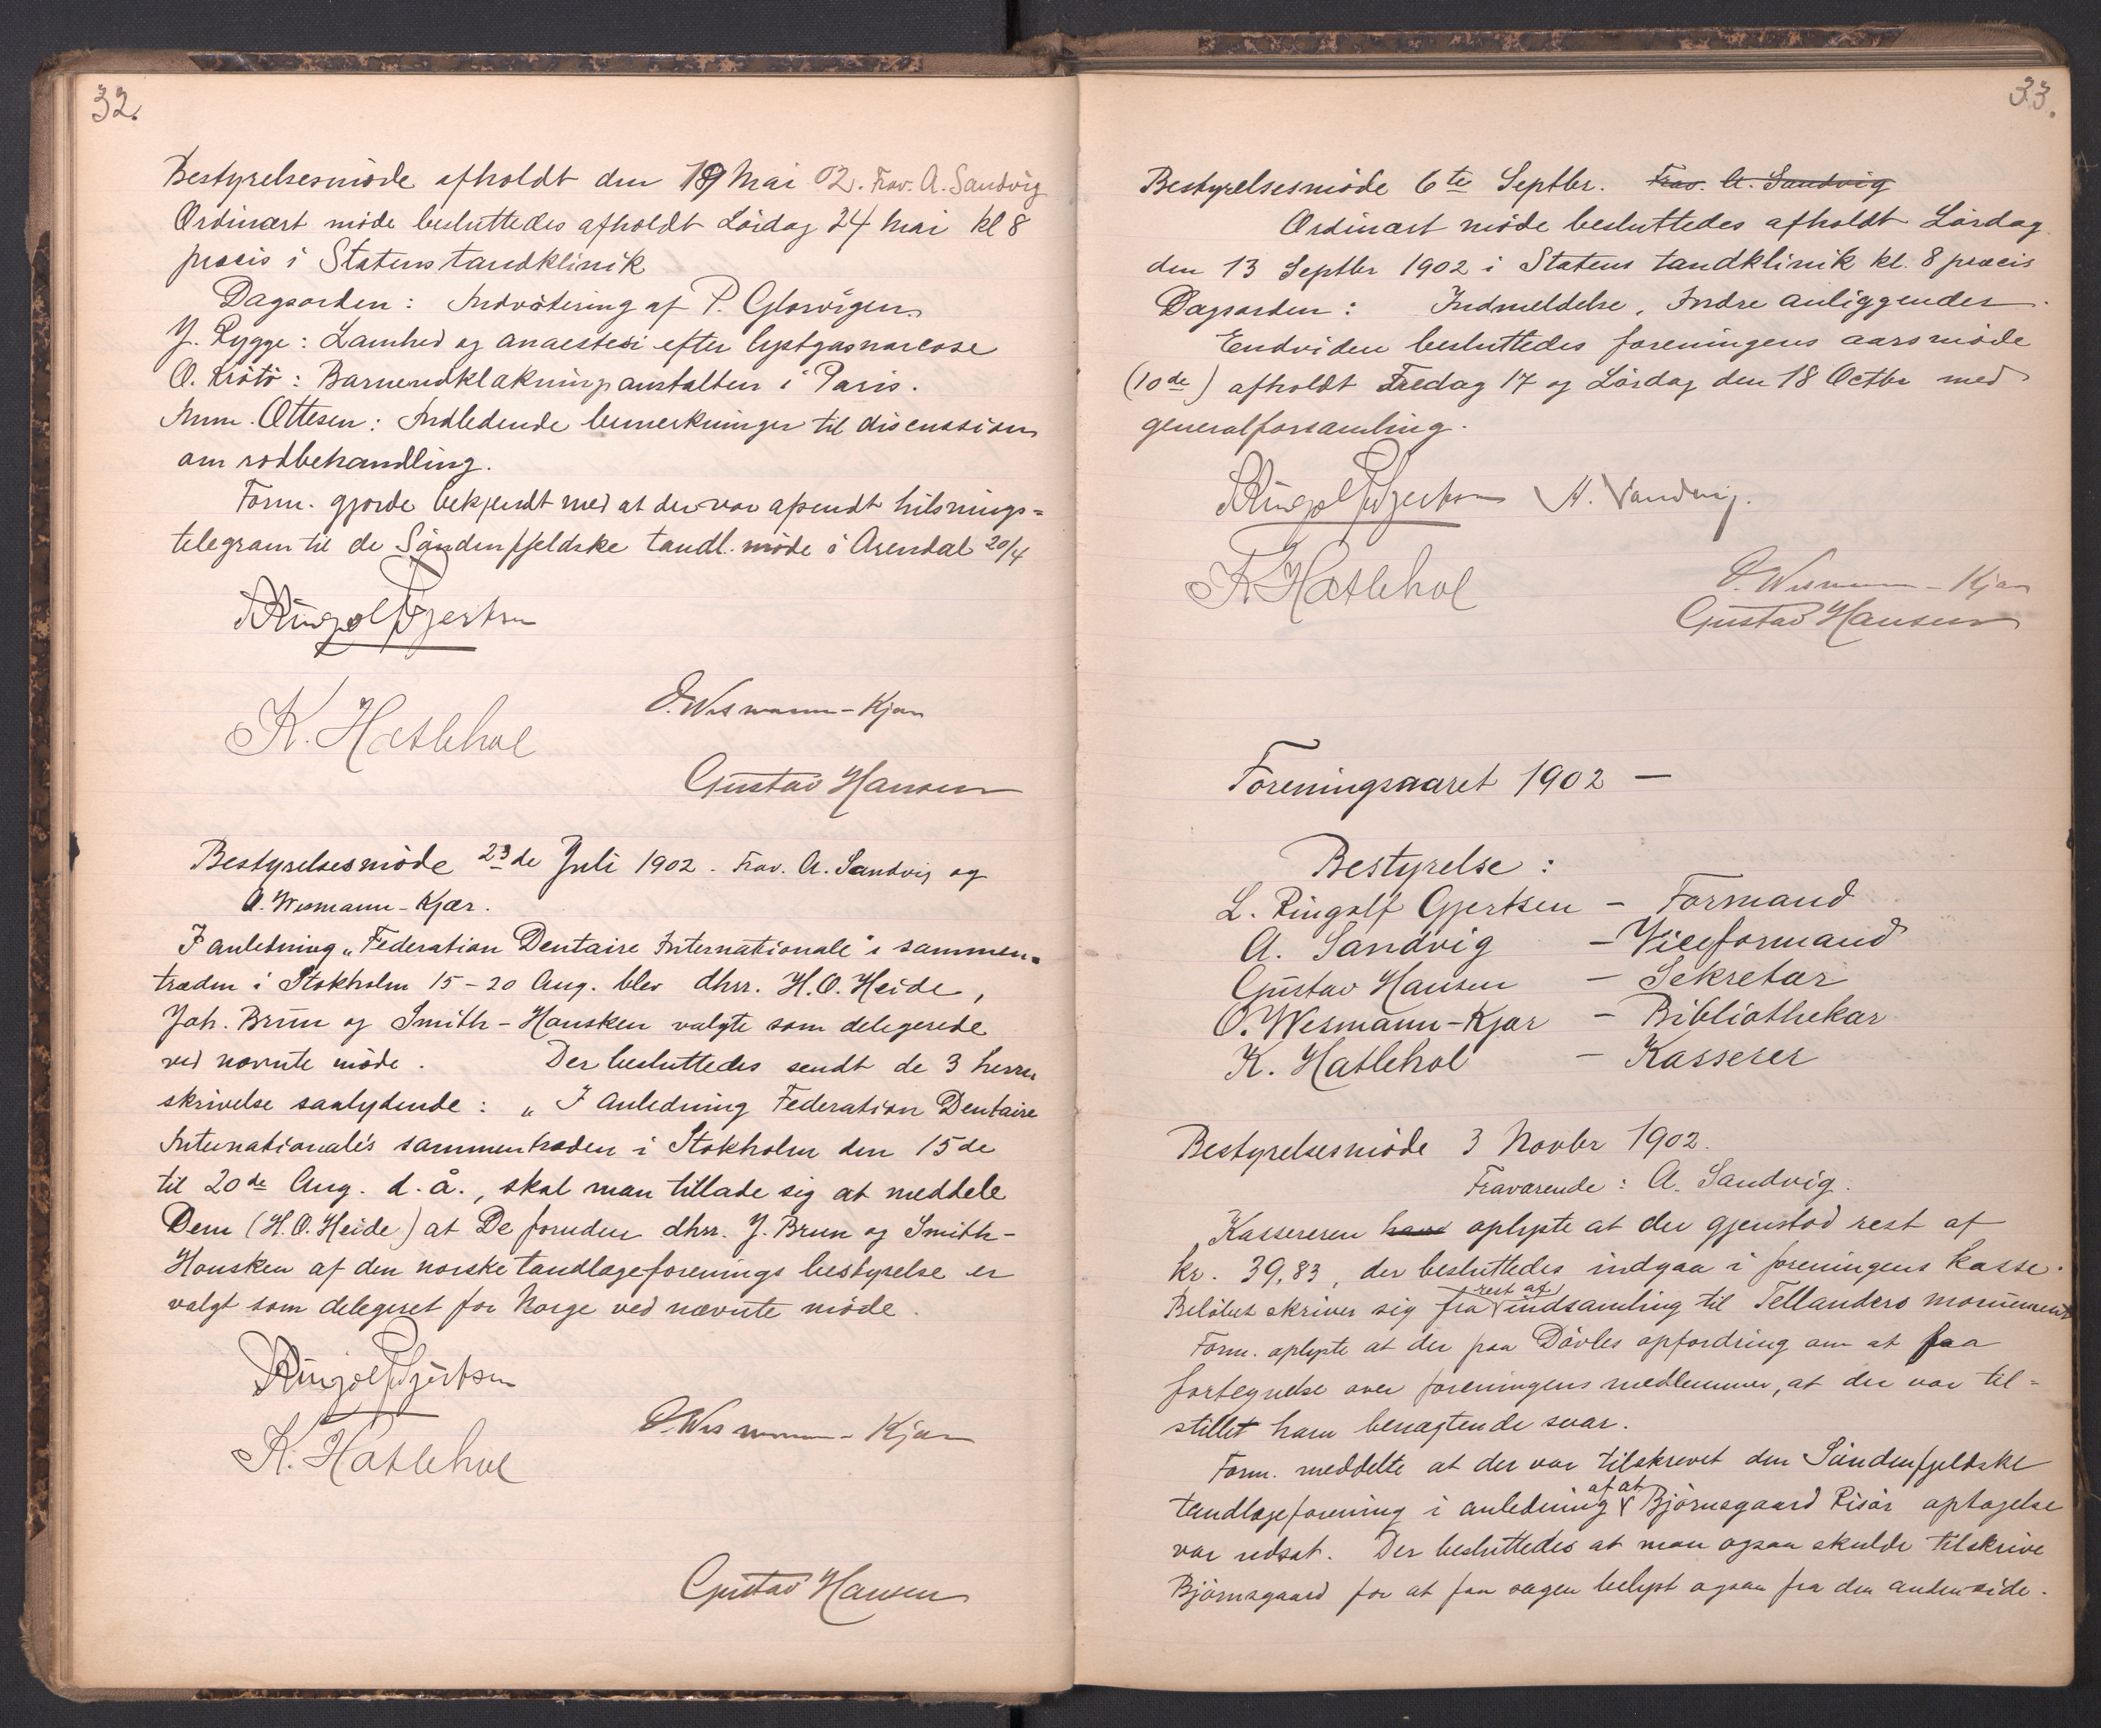 32.
Bestyrelsesmöde afholdt den 19 Mai 02. Frav. A. Sandvig
Ordinært möde besluttedes afholdt Lördag 24 Mai kl 8
præcis i Statens tandklinik
Dagsorden: Indvotering af P. Glorvigen
J. Rygge: Lamhed og anaestesi efter lystgasnarcose
O. Krötö: Barneudklækningsanstalten i Paris.
Imm. Ottesen: Indledende bemerkninger til discussion
om rodbehandling.
Form. gjorde bekjendt med at der var afsendt hilsnings=
telegram til de Söndenfjeldske tandl. möde i Arendal 20/4
L Ringolf Gjertsen
O. Wesmann-Kjær
K. Hatlehol
Gustav Hansen
Bestyrelsesmöde 23de Juli 1902. Frav. A. Sandvig og
O. Wesmann-Kjær.
I anledning „Federation Dentaire Internationale"s sammen=
træden i Stokholm 15-20 Aug. blev dhrr. H.O. Heide,
Joh. Brun og Smith-Housken valgte som delegerede
ved nævnte möde. Der besluttedes sendt de 3 herrer
skrivelse saalydende: „I Anledning Federation Dentaire
Internationale's sammentræden i Stokholm den 15de
til 20de Aug. d. å., skal man tillade sig at meddele
Dem (H.O. Heide) at De foruden dhrr. J. Brun og Smith-
Housken af den norske tandlægeforenings bestyrelse er
valgt som delegeret for Norge ved nævnte möde.
L Ringolf Gjertsen
O. Wesmann-Kjær
K. Hatlehol
Gustav Hansen
33.
Bestyrelsesmöde 6te Septbr. Frav. A. Sandvig
Ordinært möde besluttedes afholdt Lördag
den 13 Septbr 1902 i Statens tandklinik kl. 8 præcis
Dagsorden: Indmeldelse, Indre anliggender.
Endviden besluttedes foreningens aarsmöde
(10de) afholdt Fredag 17 og Lördag den 18 Octbr med
generalforsamling.
L Ringolf Gjertsen A. Sandvig.
K. Hatlehol
O. Wesmann-Kjær
Gustav Hansen
Foreningsaaret 1902 —
Bestyrelse:
L. Ringolf Gjertsen - Formand
A. Sandvig - Viceformand
Gustav Hansen - Sekretær
O. Wesmann-Kjær - Bibliothekar
K. Hatlehol - Kasserer
Bestyrelsesmöde 3 Novbr 1902.
Fraværende: A. Sandvig.
Kassereren havd oplyste at der gjenstod rest af
kr. 39,83, der besluttedes indgaa i foreningens kasse.
Belöbet skriver sig fra rest af indsamling til Tellanders monument
Form. oplyste at der paa Dövles opfordring om at faa
fortegnelse over foreningens medlemmer, at der var til=
stillet ham benægtende svar.
Form. meddelte at der var tilskrevet den Söndenfjeldske
tandlægeforening i anledning af at Björnsgaard Risör optagelse
var udsat. Der besluttedes at man ogsaa skulde tilskrive
Björnsgaard for at faa sagen belyst ogsaa fra den anden side.